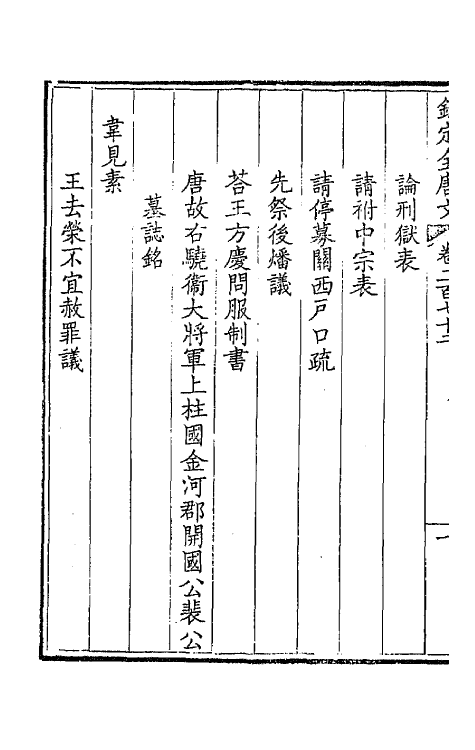 欽定全唐文 卷二百七十二
論刑獄表
請祔中宗表
請停募關西戶口疏
先祭後燔議
荅王方慶問服制書
唐故右驍衞大將軍上柱國金河郡開國公裴公
墓誌銘
韋見素
王去榮不宜赦罪議
一